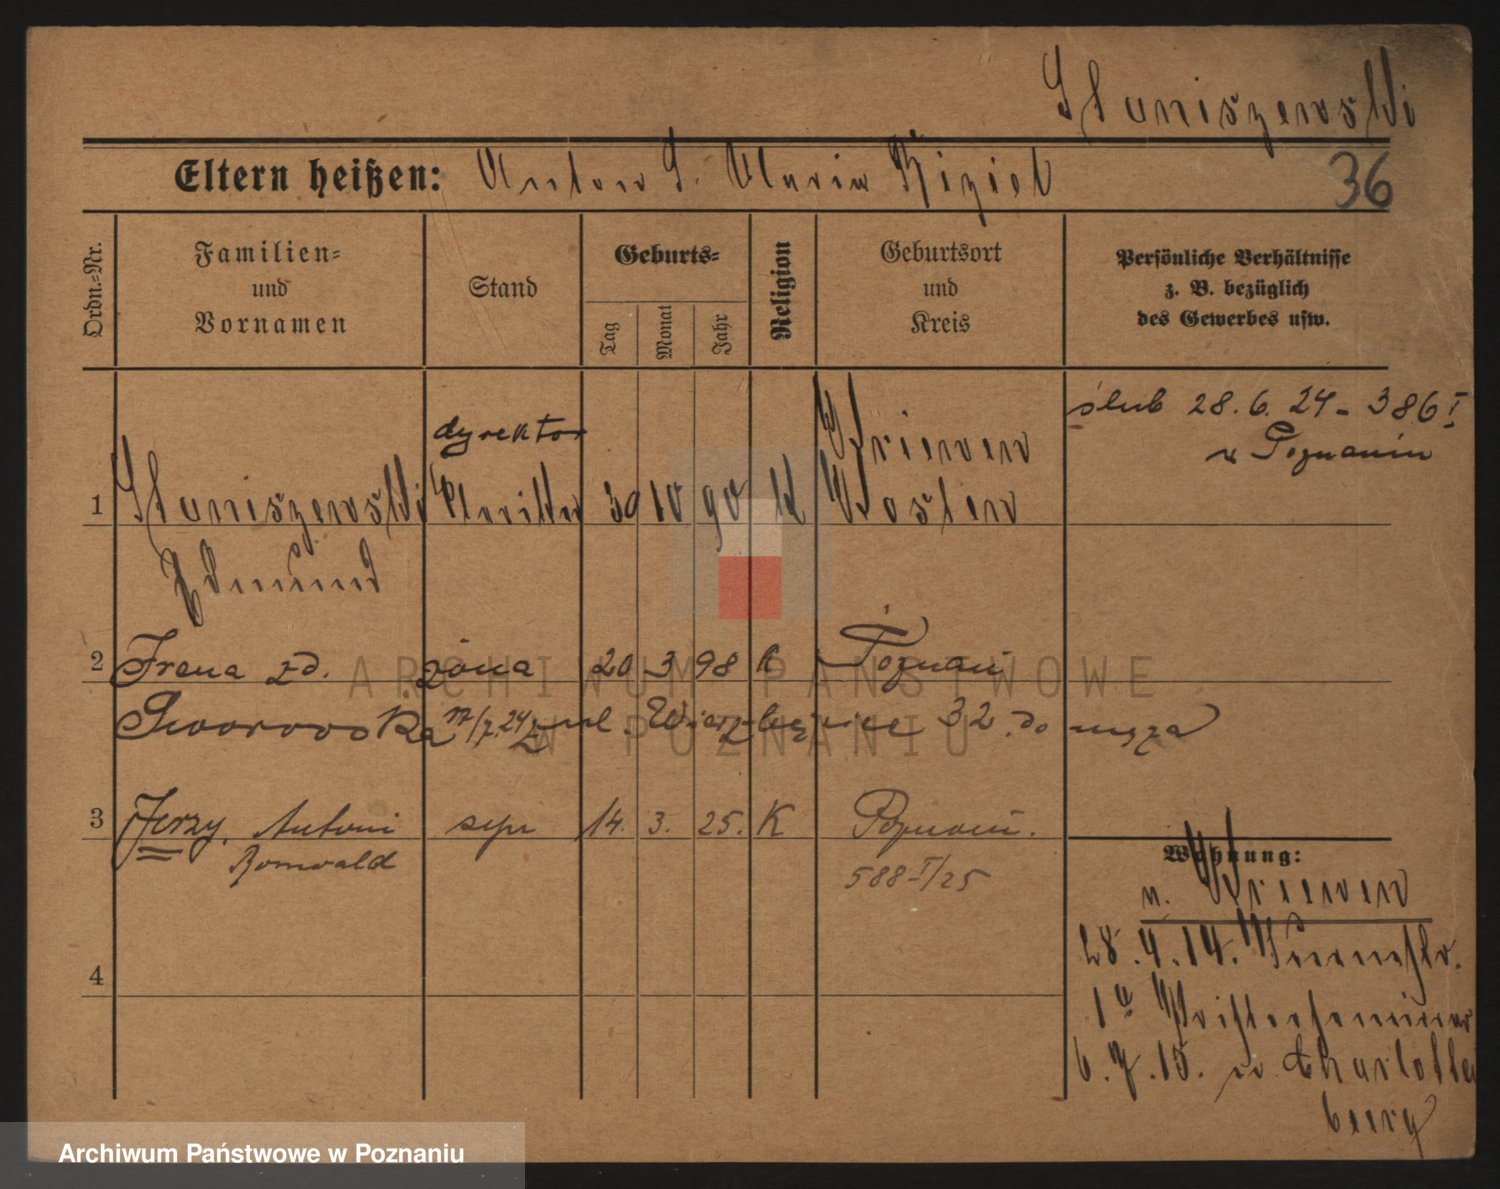 Staniszewski
Eltern heißen: Anton S. Maria Kiziol
36
Ordn.-Nr.
Familien-
und
Vornamen
Stand
Geburts-
Tag
Monat
Jahr
Religion
Geburtsort
und
Kreis
Persönliche Verhältnisse
z. B. bezüglich
des Gewerbes usw.
dyrektor
Kriewen
ślub 28. 6. 24 - 386 I
w Poznaniu
1 Staniszewski 30 10 90 K Kosten
Edmund
2 Irena zd. żona 20 3 98 K Poznań
ul. Wierzbięcice 32. do męża
3 Jerzy, Antoni syn 14. 3. 25. K Poznań.
Romuald
588 I/25
Wohnung:
n. Kriewen
4
28. 4. 14.
1a Priesterseminar
6. 7. 15. n. Charlotten
burg
ARCHIWUM PAŃSTWOWE
W POZNANIU
Archiwum Państwowe w Poznaniu